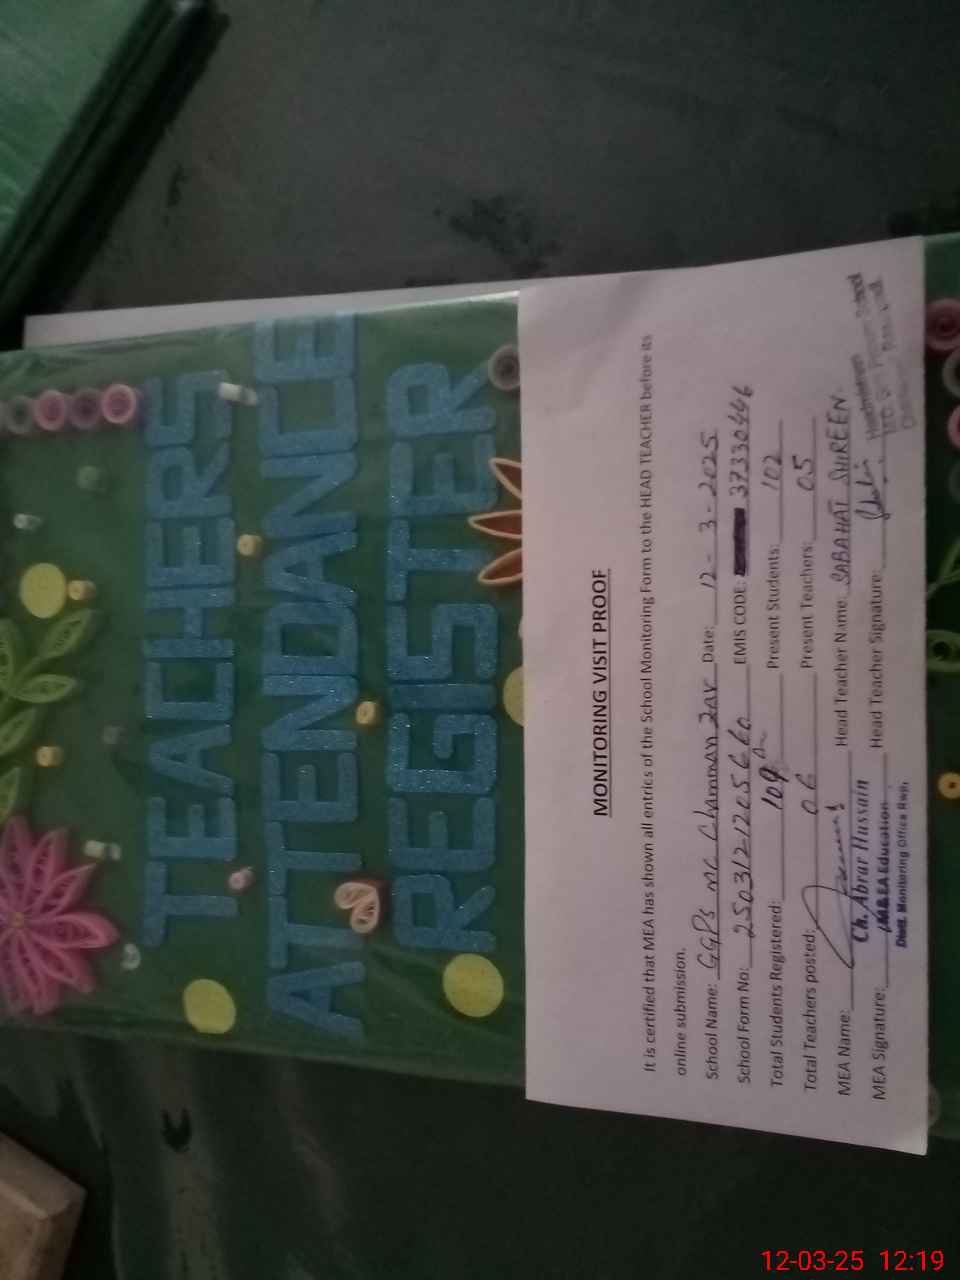 TEACHERS
ATTENDANCE
REGISTER
MONITORING VISIT PROOF
It is certified that MEA has shown all entries of the School Monitoring Form to the HEAD TEACHER before its
online submission.
School Name: GGPS MC Chamman Zar Date: 12-3-2025
School Form No: 2503121205660 EMIS CODE: 37330446
Total Students Registered: 109 Present Students: 102
Total Teachers posted: 06 Present Teachers: 05
MEA Name: Ch. Abrar Hussain Head Teacher Name: SABAHAT SHIREEN
MEA Signature: M&EA Education Head Teacher Signature:
Distt. Monitoring Office Rwp.
Headmistress
12-03-25 12:19